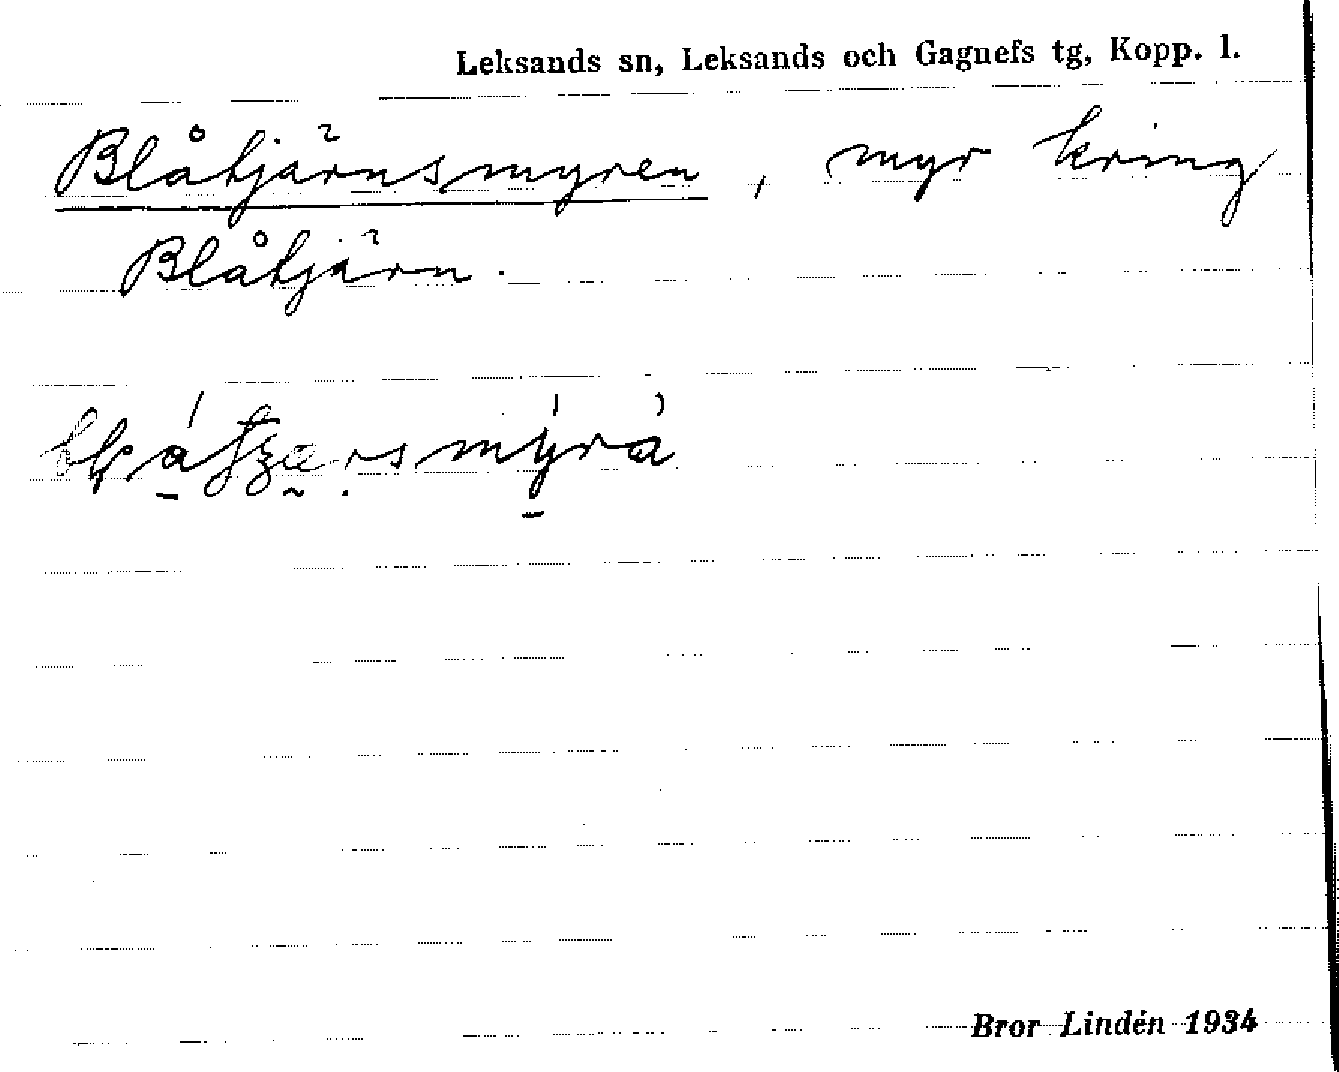 Leksands sn, Leksands och Gagnefs tg, Kopp. l.
Blåtjärnsmyren, myr kring
Blåtjärn.
Bror Lindén 1934